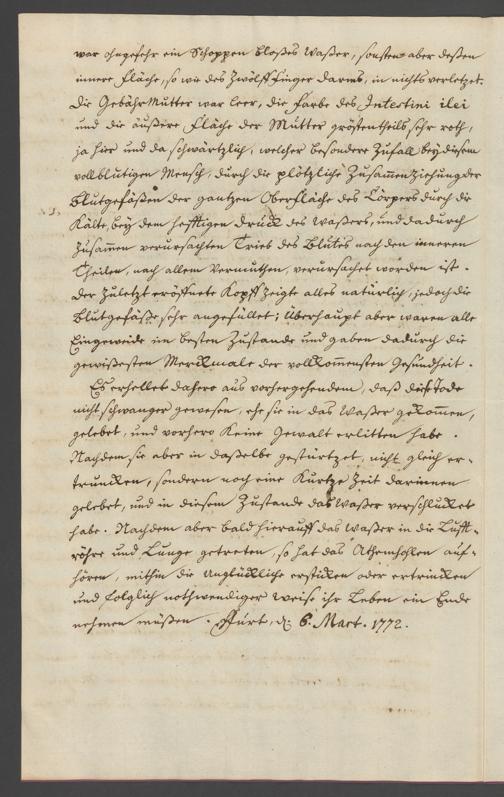 war ohngefehr ein Schoppen bloßes Waßer, sonsten aber deßen
innere Fläche, so wie des Zwölff Finger Darms, in nichts verletzet.
Die GebährMutter war leer, die Farbe des Intestini ilei
und die äußere Fläche der Mutter gröstentheils sehr roth,
ja hier und da schwärtzlich, welcher besondere Zufall bey diesem
vollblutigen Mensch, durch die plötzliche Zusammenziehung der
Blutgefäßen der gantzen Oberfläche des Cörpers durch die
Kälte, bey dem hefftigen Druck des Waßers, und dadurch
zusammen verursachten Trieb des Blutes nach den inneren
Theilen, nach allem Vermuthen, verursachet worden ist.
Der zuletzt eröffnete Kopff zeigte alles natürlich, jedoch die
Blutgefäße sehr angefüllet; Überhaupt aber waren alle
Eingeweide im besten Zustande und gaben dadurch die
gewißesten Merckmale der vollkommensten Gesundheit.
Es erhellet dahero aus vorhergehendem, daß diese Tode
nicht schwanger gewesen, ehe sie in das Waßer gekommen,
gelebet, und vorhero keine Gewalt erlitten habe.
Nachdem sie aber in daßelbe gestürtzet, nicht gleich er-
truncken, sondern noch eine kurtze Zeit darinnen
gelebet, und in diesem Zustande das Waßer verschlucket
habe. Nachdem aber bald hierauff das Waßer in die Lufft-
röhre und Lunge getreten, so hat das Athemhohlen auf-
hören, mithin die Unglückliche ersticken oder ertrincken
und folglich nothwendiger weise ihr Leben ein Ende
nehmen müßen. Ffurt, d. 6. Mart. 1772.